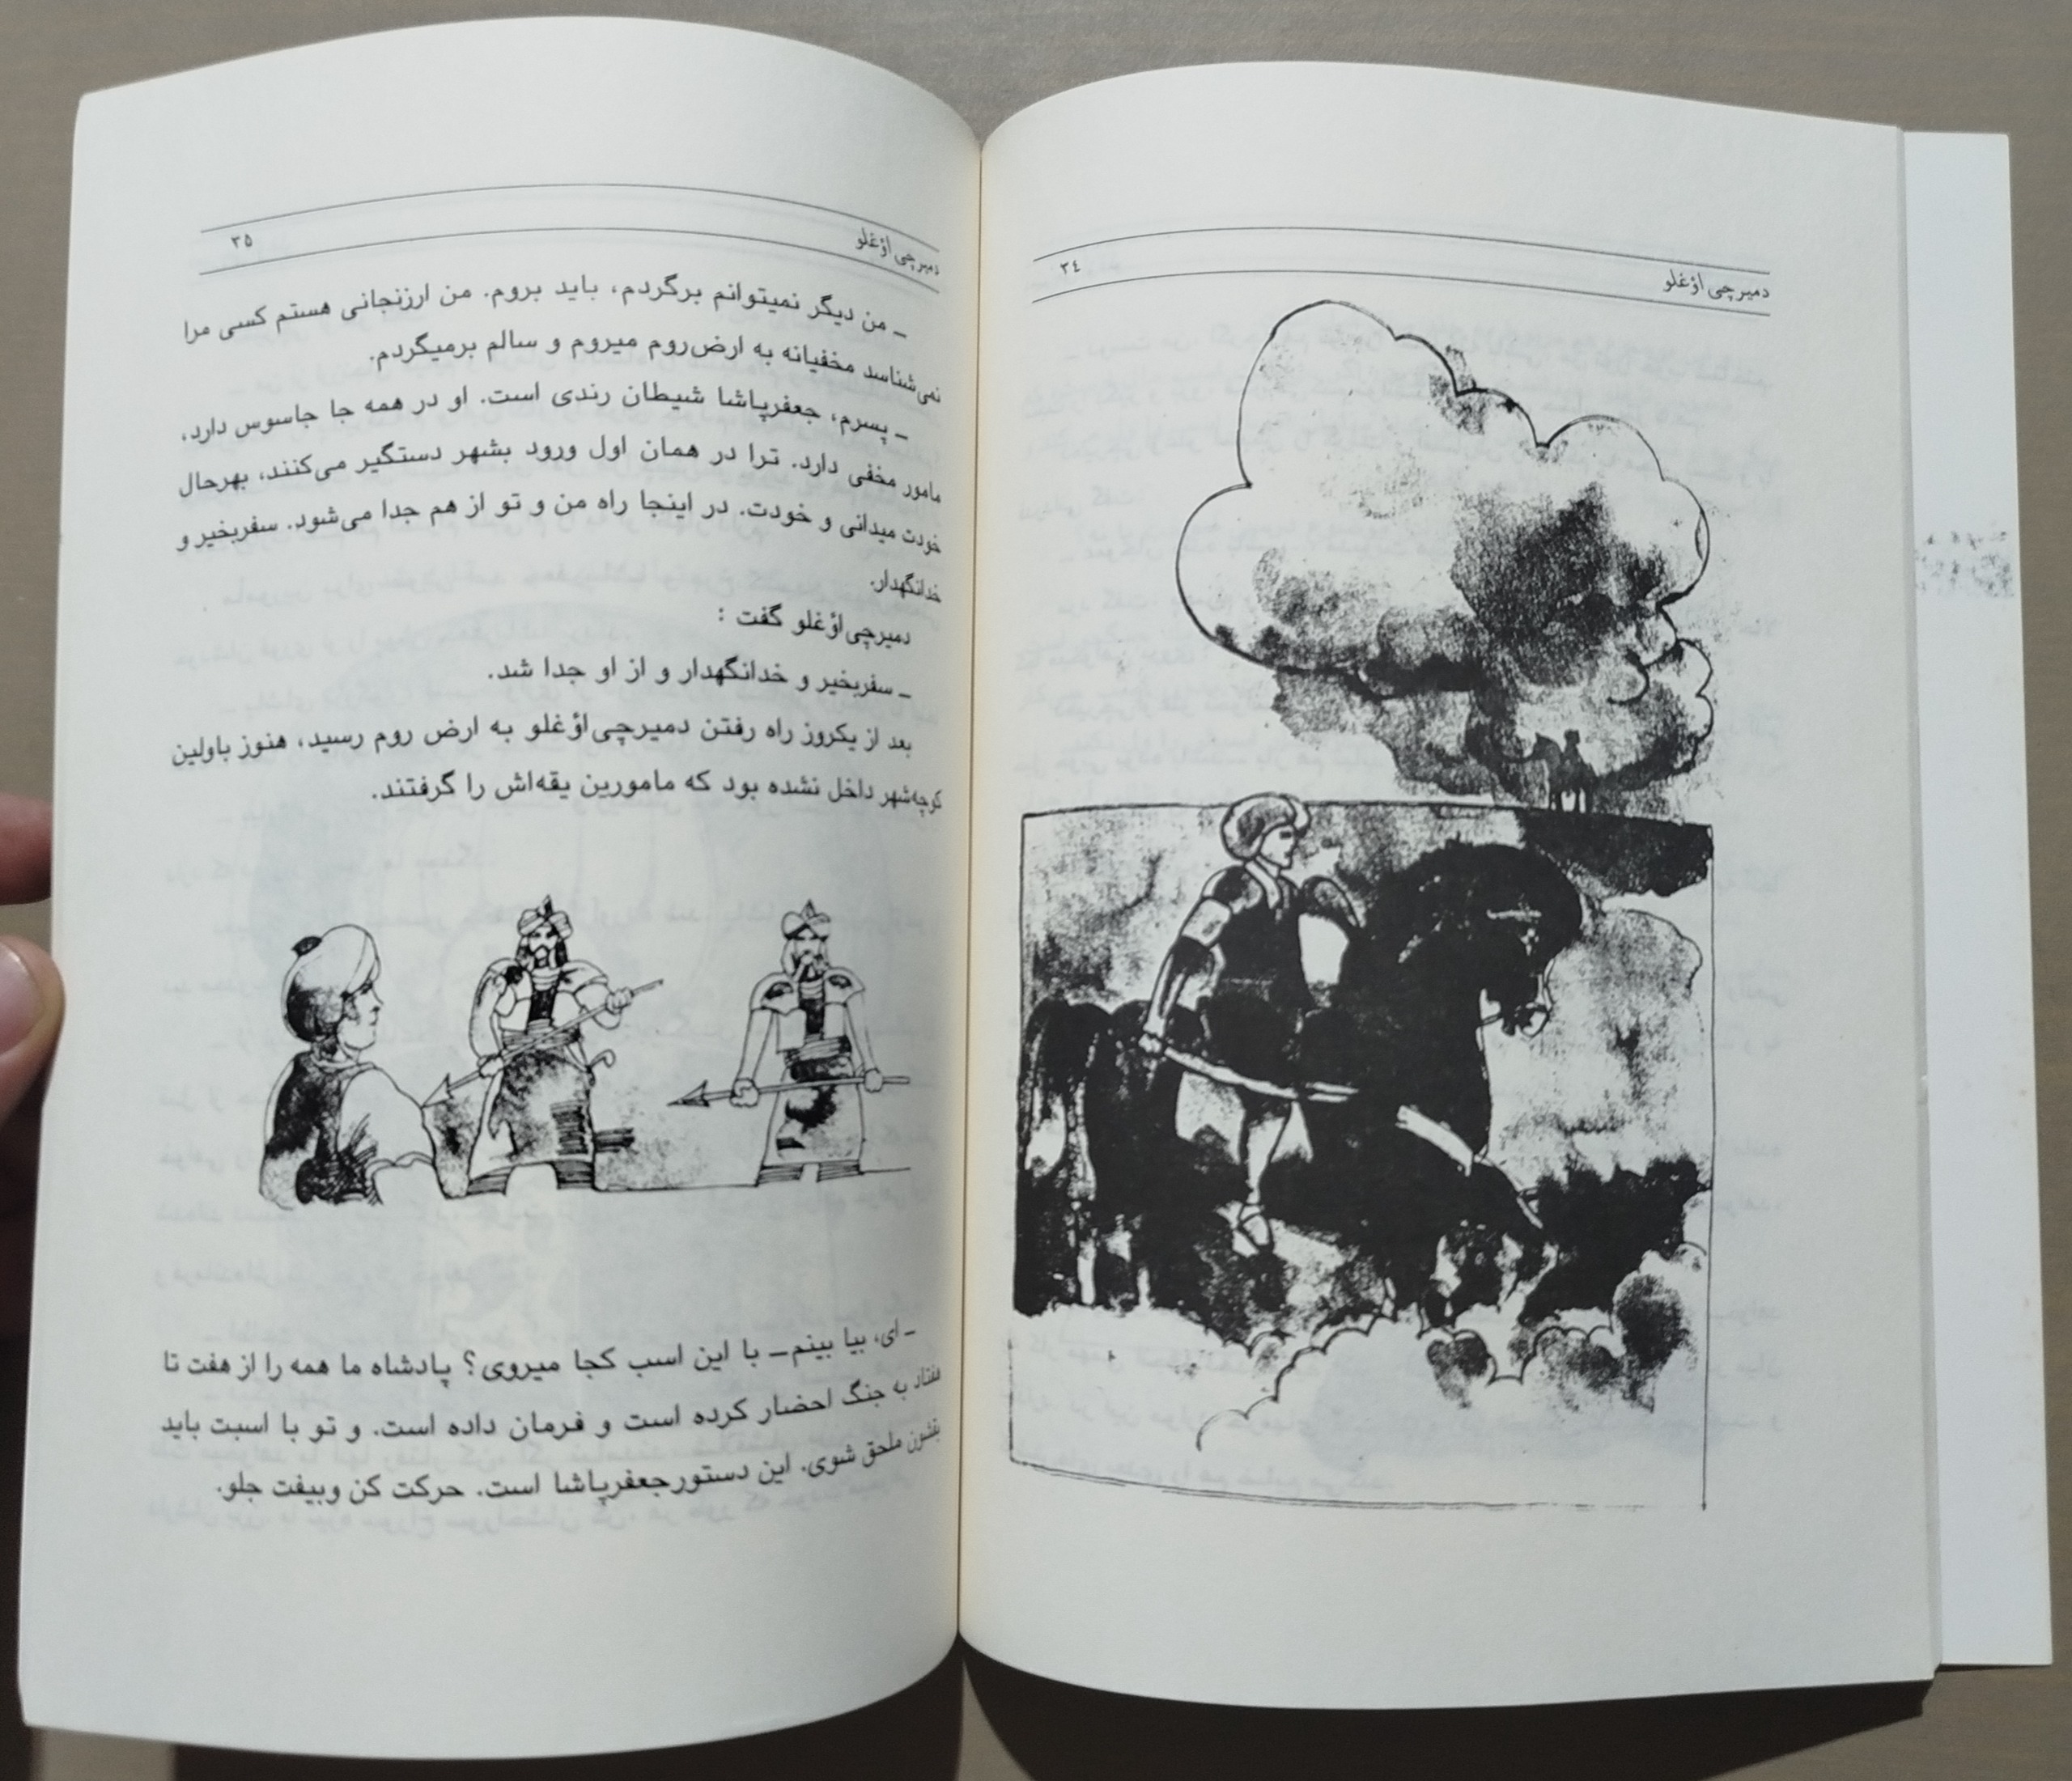 دمیرچی اؤغلو
۳٤
دمیرچی اؤغلو
۳۵
ـ من دیگر نمیتوانم برگردم، باید بروم. من ارزنجانی هستم کسی مرا
نمی‌شناسد مخفیانه به ارض‌روم میروم و سالم برمیگردم.
ـ پسرم، جعفرپاشا شیطان رندی است. او در همه جا جاسوس دارد،
مامور مخفی دارد. ترا در همان اول ورود بشهر دستگیر می‌کنند، بهرحال
خودت میدانی و خودت. در اینجا راه من و تو از هم جدا می‌شود. سفربخیر و
خدانگهدار.
دمیرچی‌اؤغلو گفت :
ـ سفربخیر و خدانگهدار و از او جدا شد.
بعد از یکروز راه رفتن دمیرچی‌اؤغلو به ارض روم رسید، هنوز باولین
کوچه‌شهر داخل نشده بود که مامورین یقه‌اش را گرفتند.
ـ ای، بیا بینم ـ با این اسب کجا میروی؟ پادشاه ما همه را از هفت تا
هفتاد به جنگ احضار کرده است و فرمان داده است. و تو با اسبت باید
بقشون ملحق شوی. این دستورجعفرپاشا است. حرکت کن وبیفت جلو.